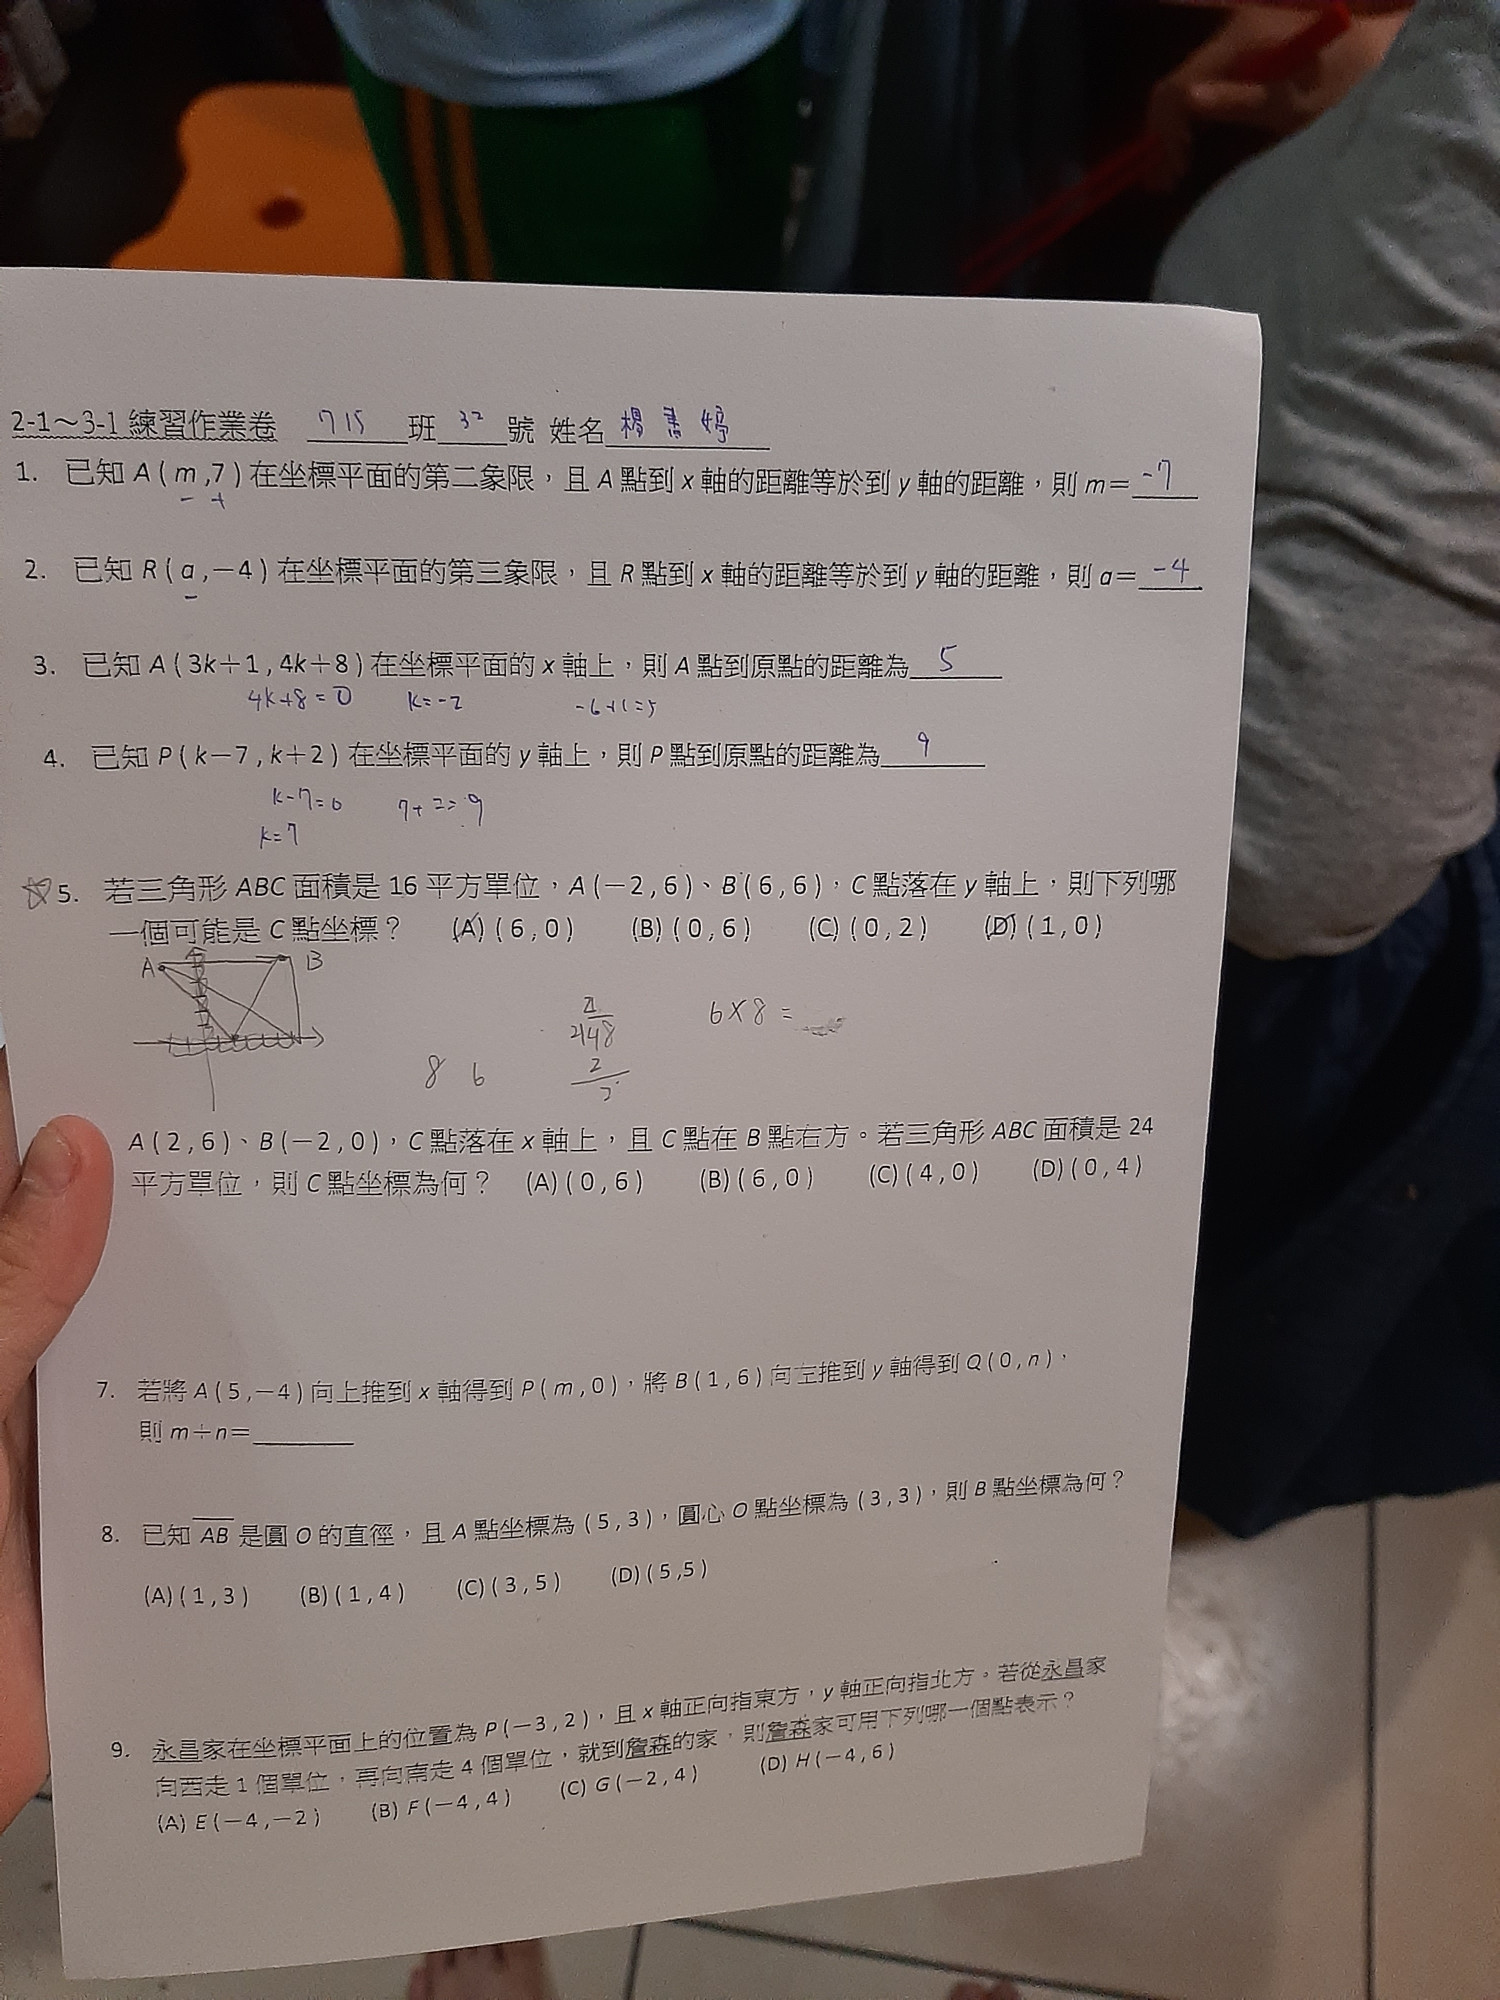 2-1～3-1 練習作業卷 715 班 32 號 姓名 楊 書 婷
1. 已知 A ( m , 7 ) 在坐標平面的第二象限，且 A 點到 x 軸的距離等於到 y 軸的距離，則 m＝ -7
- +
2. 已知 R ( a , －4 ) 在坐標平面的第三象限，且 R 點到 x 軸的距離等於到 y 軸的距離，則 a＝ -4
-
3. 已知 A ( 3k＋1 , 4k＋8 ) 在坐標平面的 x 軸上，則 A 點到原點的距離為 5
4k+8=0 k=-2 -6+1=5
4. 已知 P ( k－7 , k＋2 ) 在坐標平面的 y 軸上，則 P 點到原點的距離為 9
k-7=0 7+2=9
k=7
☆5. 若三角形 ABC 面積是 16 平方單位，A (－2 , 6 )、B ( 6 , 6 )，C 點落在 y 軸上，則下列哪
一個可能是 C 點坐標？ (A) ( 6 , 0 ) (B) ( 0 , 6 ) (C) ( 0 , 2 ) (D) ( 1 , 0 )
A B
6×8=
8 6
A ( 2 , 6 )、B (－2 , 0 )，C 點落在 x 軸上，且 C 點在 B 點右方。若三角形 ABC 面積是 24
平方單位，則 C 點坐標為何？ (A) ( 0 , 6 ) (B) ( 6 , 0 ) (C) ( 4 , 0 ) (D) ( 0 , 4 )
7. 若將 A ( 5 , －4 ) 向上推到 x 軸得到 P ( m , 0 )，將 B ( 1 , 6 ) 向左推到 y 軸得到 Q ( 0 , n )，
則 m＋n＝
8. 已知 AB 是圓 O 的直徑，且 A 點坐標為 ( 5 , 3 )，圓心 O 點坐標為 ( 3 , 3 )，則 B 點坐標為何？
(A) ( 1 , 3 ) (B) ( 1 , 4 ) (C) ( 3 , 5 ) (D) ( 5 ,5 )
9. 永昌家在坐標平面上的位置為 P (－3 , 2 )，且 x 軸正向指東方，y 軸正向指北方。若從永昌家
向西走 1 個單位，再向南走 4 個單位，就到詹森的家，則詹森家可用下列哪一個點表示？
(A) E (－4 , －2 ) (B) F (－4 , 4 ) (C) G (－2 , 4 ) (D) H (－4 , 6 )